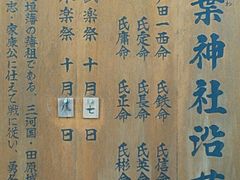 葉神社沿
田一西命　氏鉄命　氏信命
氏定命　氏長命　氏英命
氏庸命　氏正命　氏彬命
楽祭　十月七日
楽祭　十月　日
垣藩の藩祖である。三河国・田原
志・家康公に仕えて戦に従い、勇